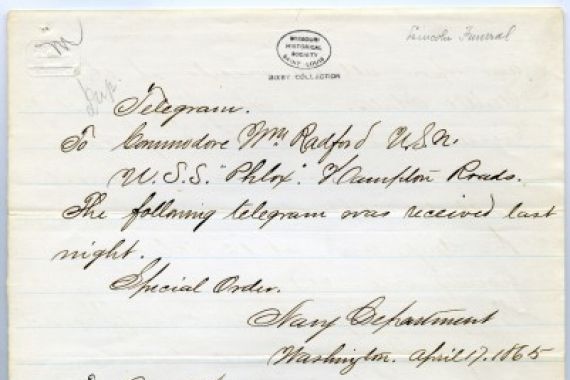 M
Lincoln Funeral
MISSOURI
HISTORICAL
SOCIETY
SAINT LOUIS
BIXBY COLLECTION
Dup.
Telegram.
To Commodore Wm Radford U.S.N.
U.S.S. "Phlox". Hampton Roads.
The following telegram was received last
night.
Special Order.
Navy Department
Washington. April 17. 1865